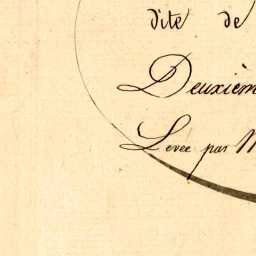 dite de
Deuxièm
Levée par M